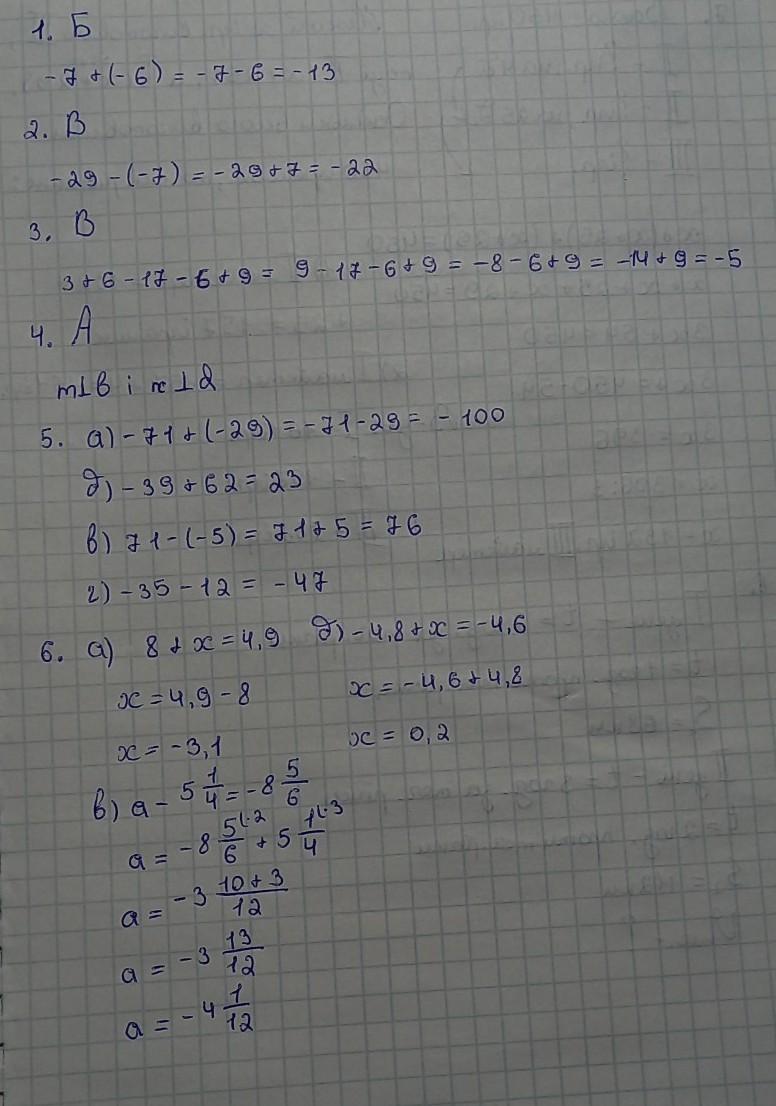 1. Б
-7 + (-6) = -7 - 6 = -13
2. В
-29 - (-7) = -29 + 7 = -22
3. В
3 + 6 - 17 - 6 + 9 = 9 - 17 - 6 + 9 = -8 - 6 + 9 = -14 + 9 = -5
4. А
m⊥b і n⊥d
5. а) -71 + (-29) = -71 - 29 = -100
б) -39 + 62 = 23
в) 71 - (-5) = 71 + 5 = 76
г) -35 - 12 = -47
6. а) 8 + x = 4,9 б) -4,8 + x = -4,6
x = 4,9 - 8 x = -4,6 + 4,8
x = -3,1 x = 0,2
в) a - 5 1/4 = -8 5/6
a = -8 5(·2/6 + 5 1(·3/4
a = -3 10+3/12
a = -3 13/12
a = -4 1/12